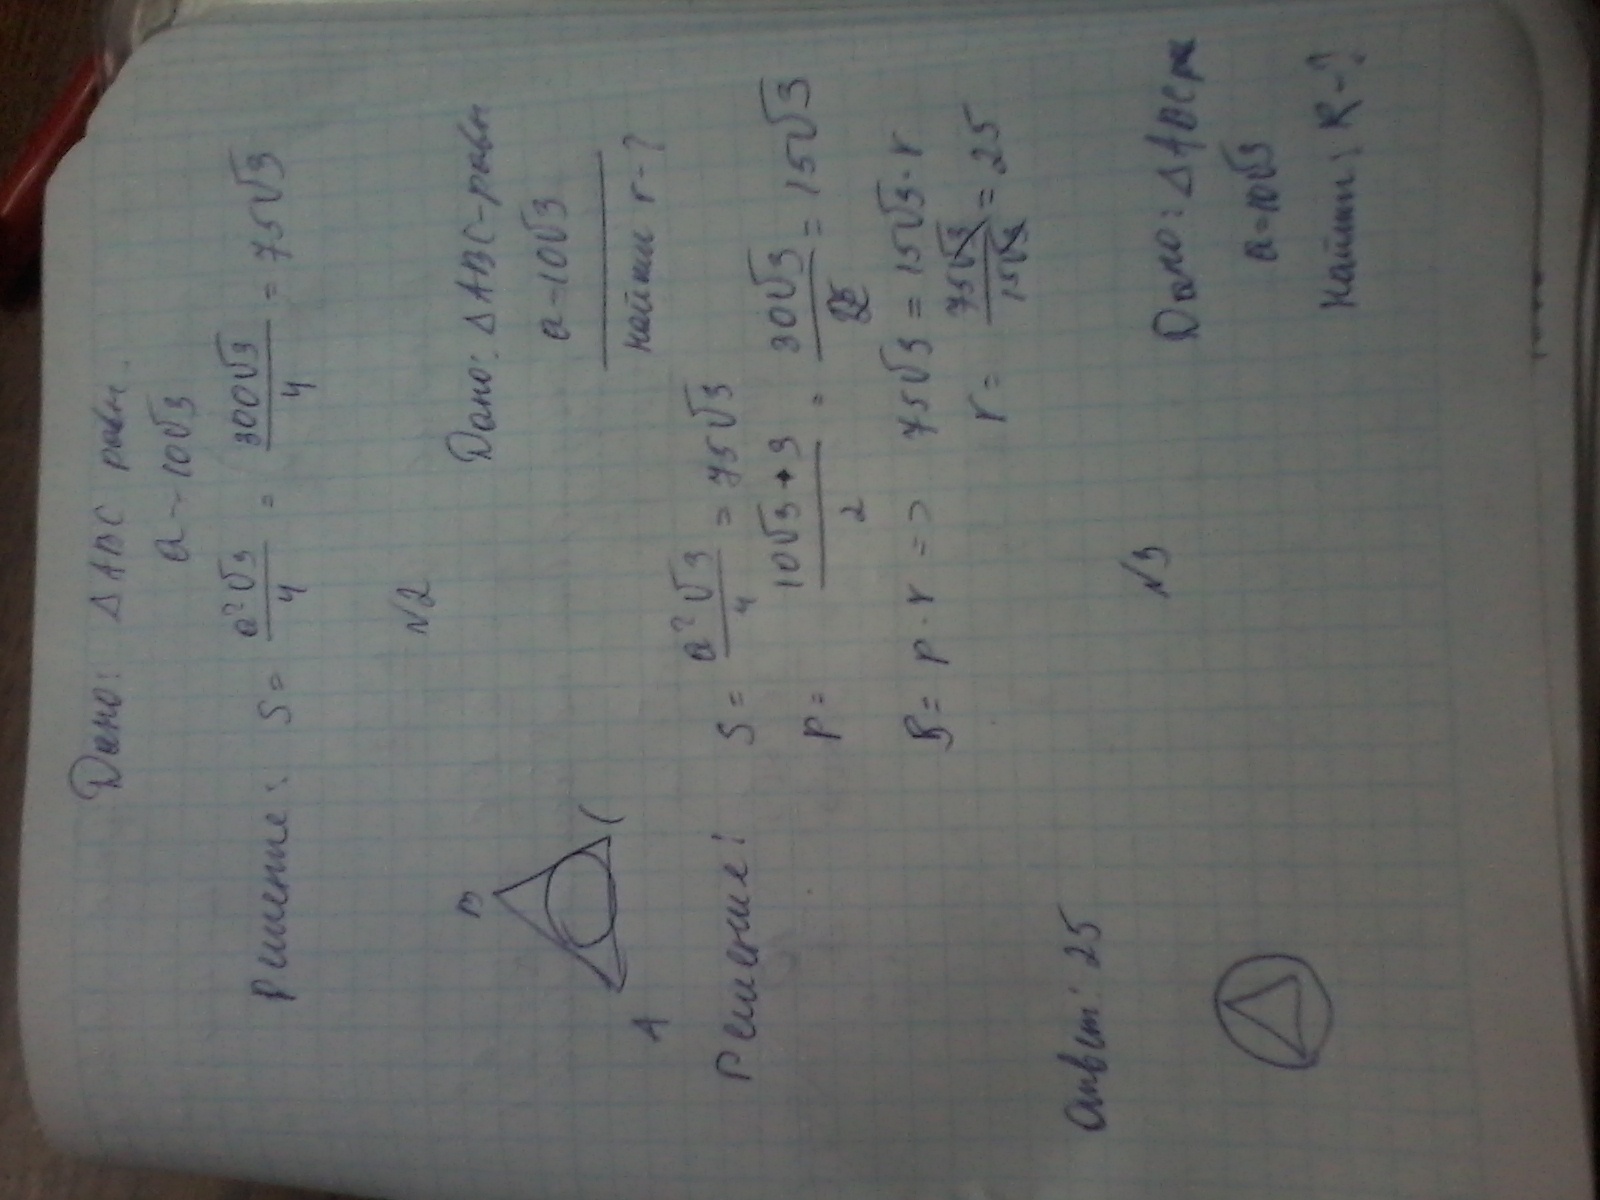 Дано: Δ ABC равн.
a - 10√3
Решение: S = a²√3/4 = 300√3/4 = 75√3
№2
Дано: Δ ABC - равн
a - 10√3
найти r - ?
B
A
C
Решение: S = a²√3/4 = 75√3
P = 10√3 * 3/2 = 30√3/2 = 15√3
S = p · r => 75√3 = 15√3 · r
r = 75√3/15√3 = 25
Ответ: 25
№3
Дано: Δ ABC рн
a = 10√3
Найти: R - ?